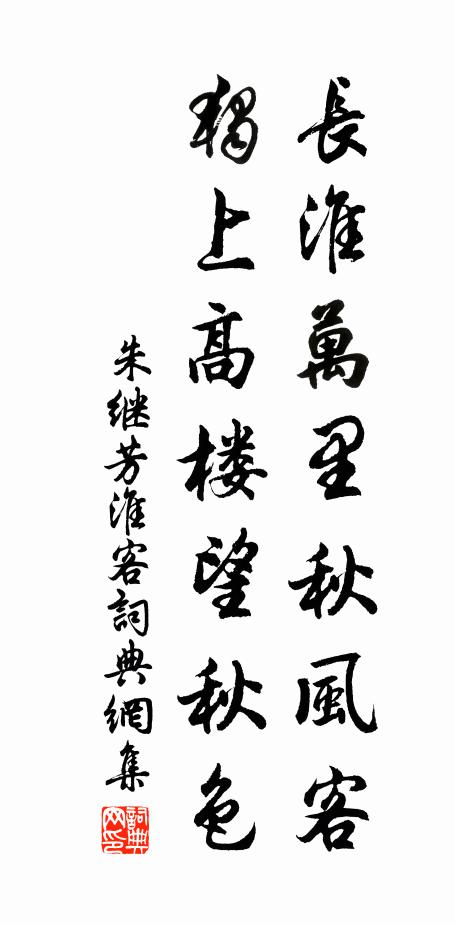 長淮萬里秋風客
獨上高楼望秋色
朱继芳淮客詞典網集
詞典网印